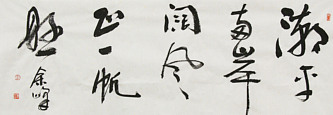 潮平
两岸
阔风
正一帆
悬